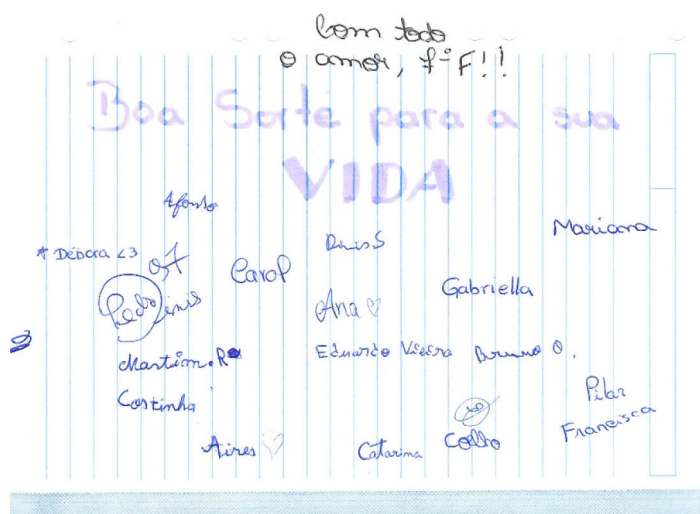 Com todo
o amor, 7º F!!
Boa Sorte para a sua
VIDA
Afonso
Mariana
* Débora <3
Dinis S
Carol
Pedro
Dinis
Ana ♡
Gabriella
Martim.R
Eduardo Vieira
Bruno O.
Costinha
Pilar
Francisca
Aires ♡
Catarina
Coelho